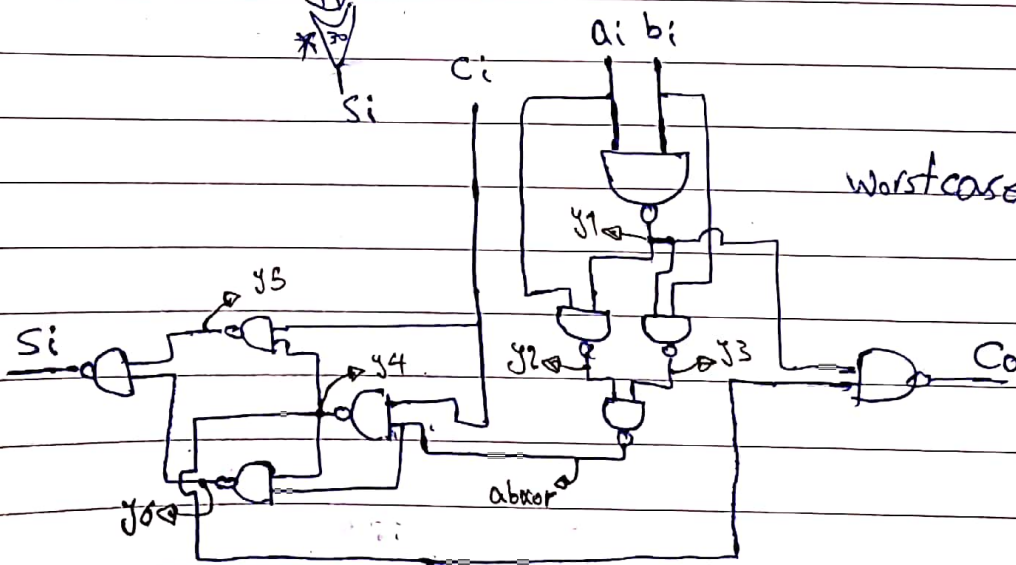 * 30
Si
Ci
ai bi
worstcase
y1
y5
Si
y2
y3
y4
Co
abxor
y6